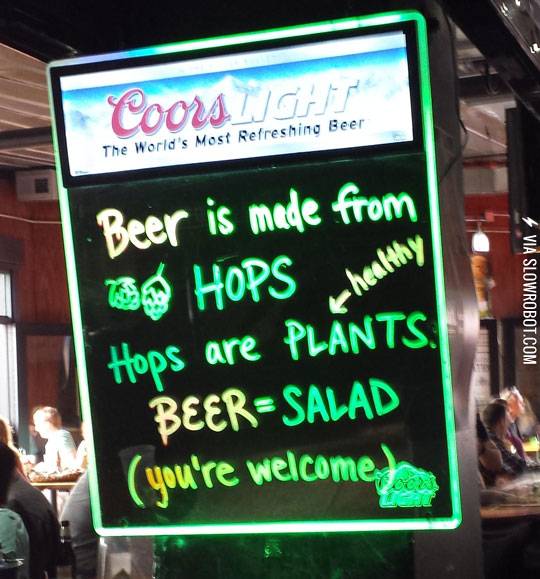 Coors LIGHT
The World's Most Refreshing Beer
Beer is made from
HOPS
healthy
Hops are PLANTS.
BEER = SALAD
(you're welcome.)
Coors
LIGHT
VIA SLOWROBOT.COM